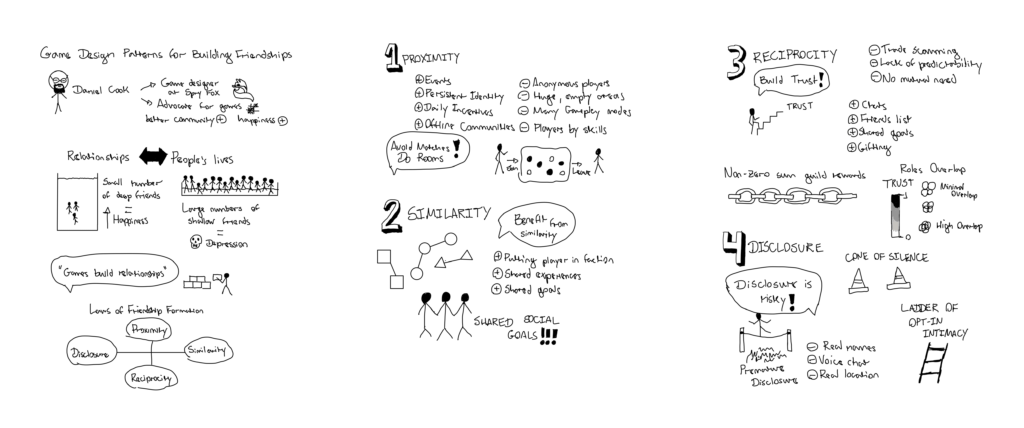 Game Design Patterns for Building Friendships
Daniel Cook
Game designer
at Spy Fox
Advocate for games
better community + happiness +
Relationships
People's lives
Small number
of deep friends
=
Happiness
Large numbers of
shallow friends
=
Depression
"Games build relationships"
Laws of Friendship Formation
Proximity
Disclosure
Similarity
Reciprocity
1 PROXIMITY
+ Events
+ Persistent Identity
+ Daily Incentives
+ Offline Communities
- Anonymous players
- Huge, empty areas
- Many Gameplay modes
- Players by skills
Avoid Matches
Do Rooms!
Join
Leave
2 SIMILARITY
Benefit from
similarity
+ Putting player in faction
+ Shared experiences
+ Shared goals
SHARED SOCIAL
GOALS!!!
3 RECIPROCITY
Build Trust!
TRUST
- Trade scamming
- Lack of predictability
- No mutual need
+ Chats
+ Friends list
+ Shared goals
+ Gifting
Non-Zero sum guild rewards
Roles Overlap
TRUST
Minimal
Overlap
High Overlap
4 DISCLOSURE
Disclosure is
risky!
Premature
Disclosure
- Real names
- Voice chat
- Real location
CONE OF SILENCE
LADDER OF
OPT-IN
INTIMACY